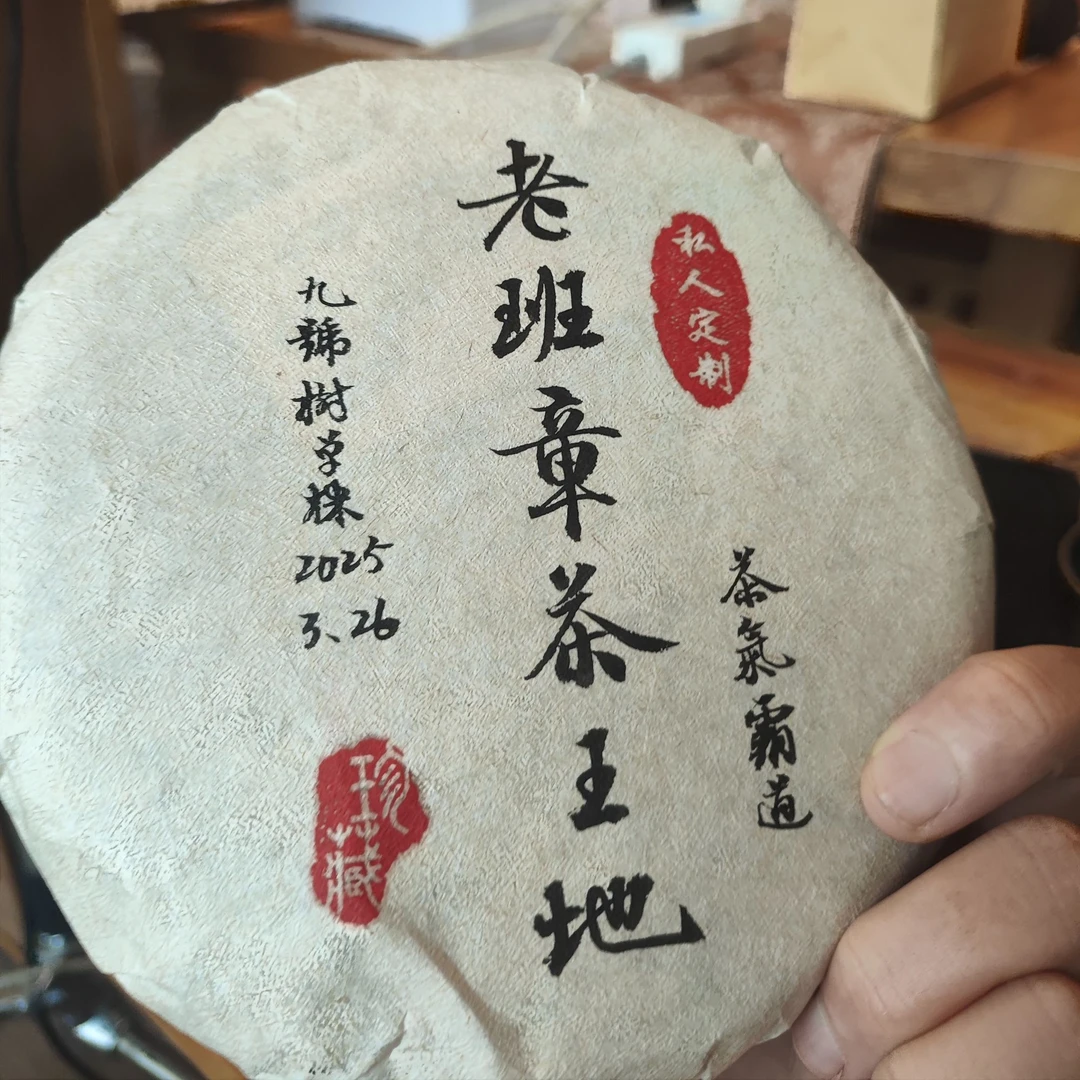 私人定制
茶氣霸道
老班章茶王地
九號樹单株
2025
3、26
珍藏